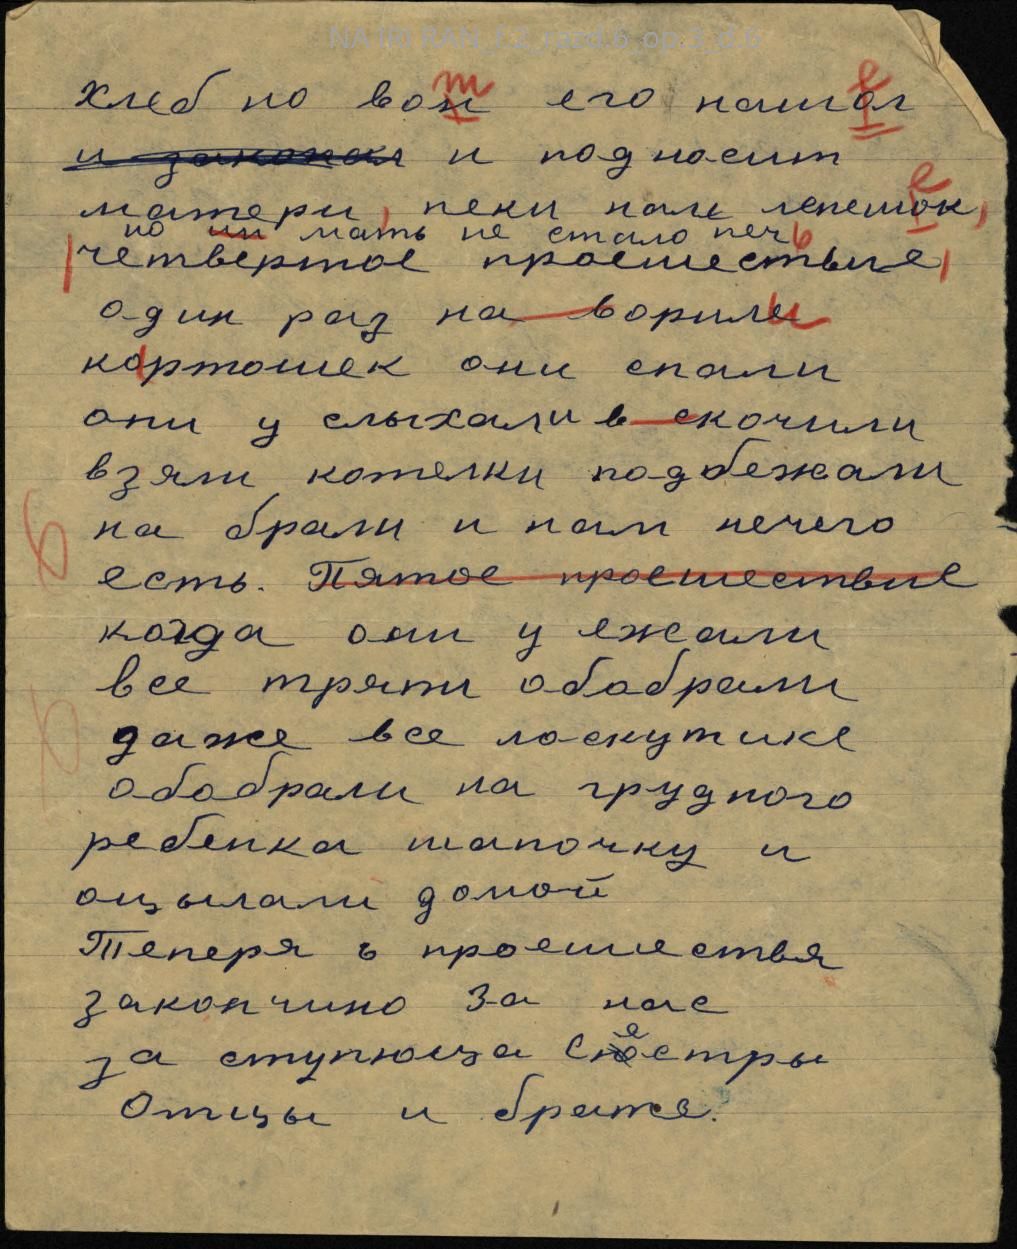 NA IRI RAN_f.2_razd.6_op.3_d.6
т е
хлеб но вон его нашол
и закопал и подносит
е
матери, пеки нам лепешок,
но ни мать не стала печь
четвертое проешествие,
один раз на ворили
картошек они спали
они у слыхали в скочили
взяли котелки подбежали
на брали и нам нечего
есть. Пятое проешествие
когда они у яжали
все тряпки обобрали
даже все лоскутике
обобрали на грудного
ребенка шапочку и
оцылали домой
Теперя ъ проешествя
закончино За нас
за ступюца Сестры
Отцы и братя.